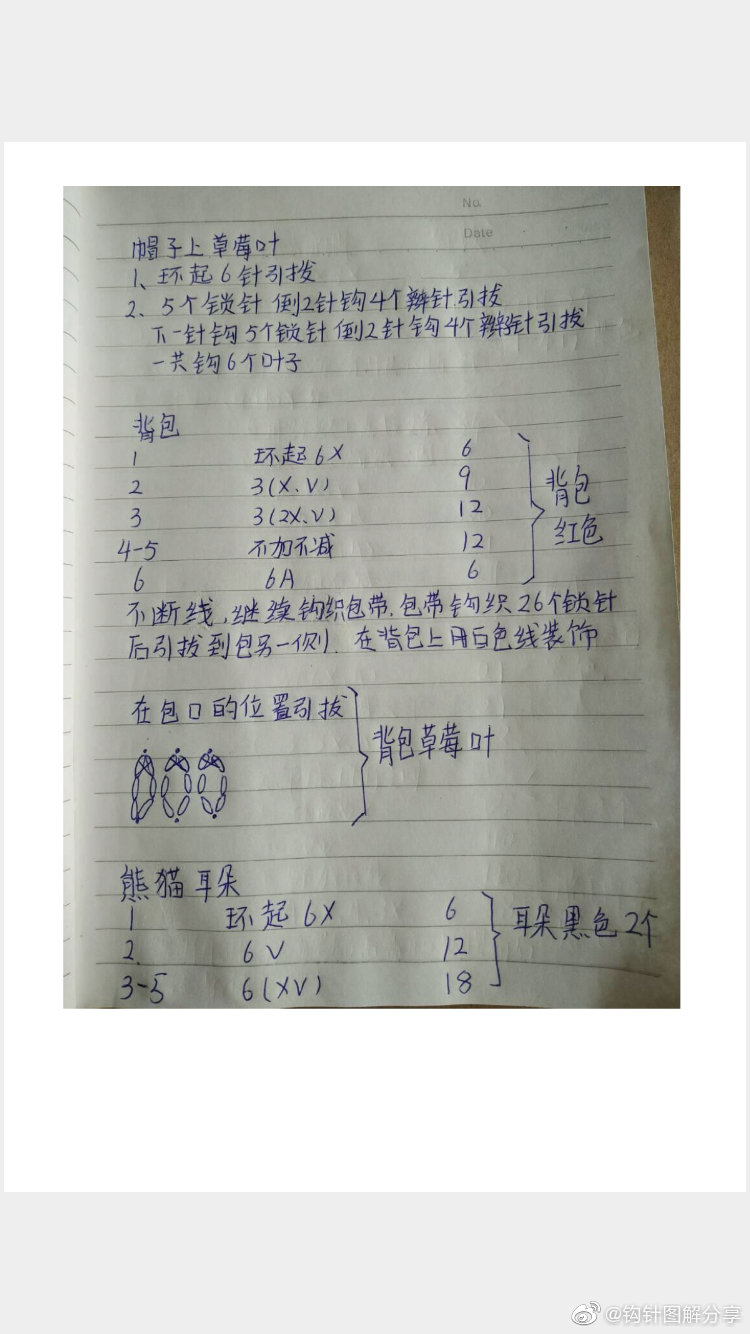 No.
Date
帽子上草莓叶
1、环起6针引拔
2、5个锁针 倒2针钩4个辫针引拔
下一针钩5个锁针 倒2针钩4个辫针引拔
一共钩6个叶子
背包
1 环起6X 6
2 3(X、V) 9
3 3(2X、V) 12
4-5 不加不减 12
6 6A 6
背包
红色
不断线,继续钩织包带.包带钩织26个锁针
后引拔到包另一侧.在背包上用白色线装饰
在包口的位置引拔
背包草莓叶
熊猫耳朵
1 环起6X 6
2. 6V 12
3-5 6(XV) 18
耳朵黑色2个
@钩针图解分享